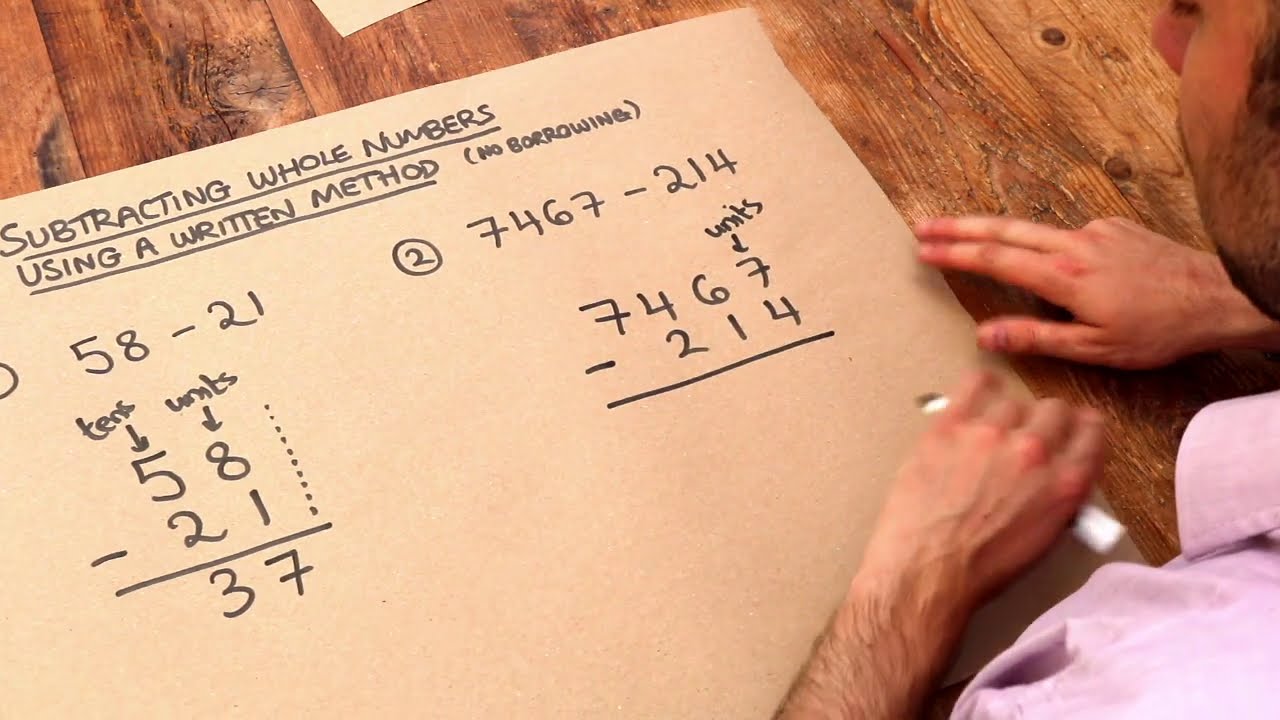 SUBTRACTING WHOLE NUMBERS
USING A WRITTEN METHOD (NO BORROWING)
58 - 21
tens units
58
- 21
37
② 7467 - 214
units
7467
- 214